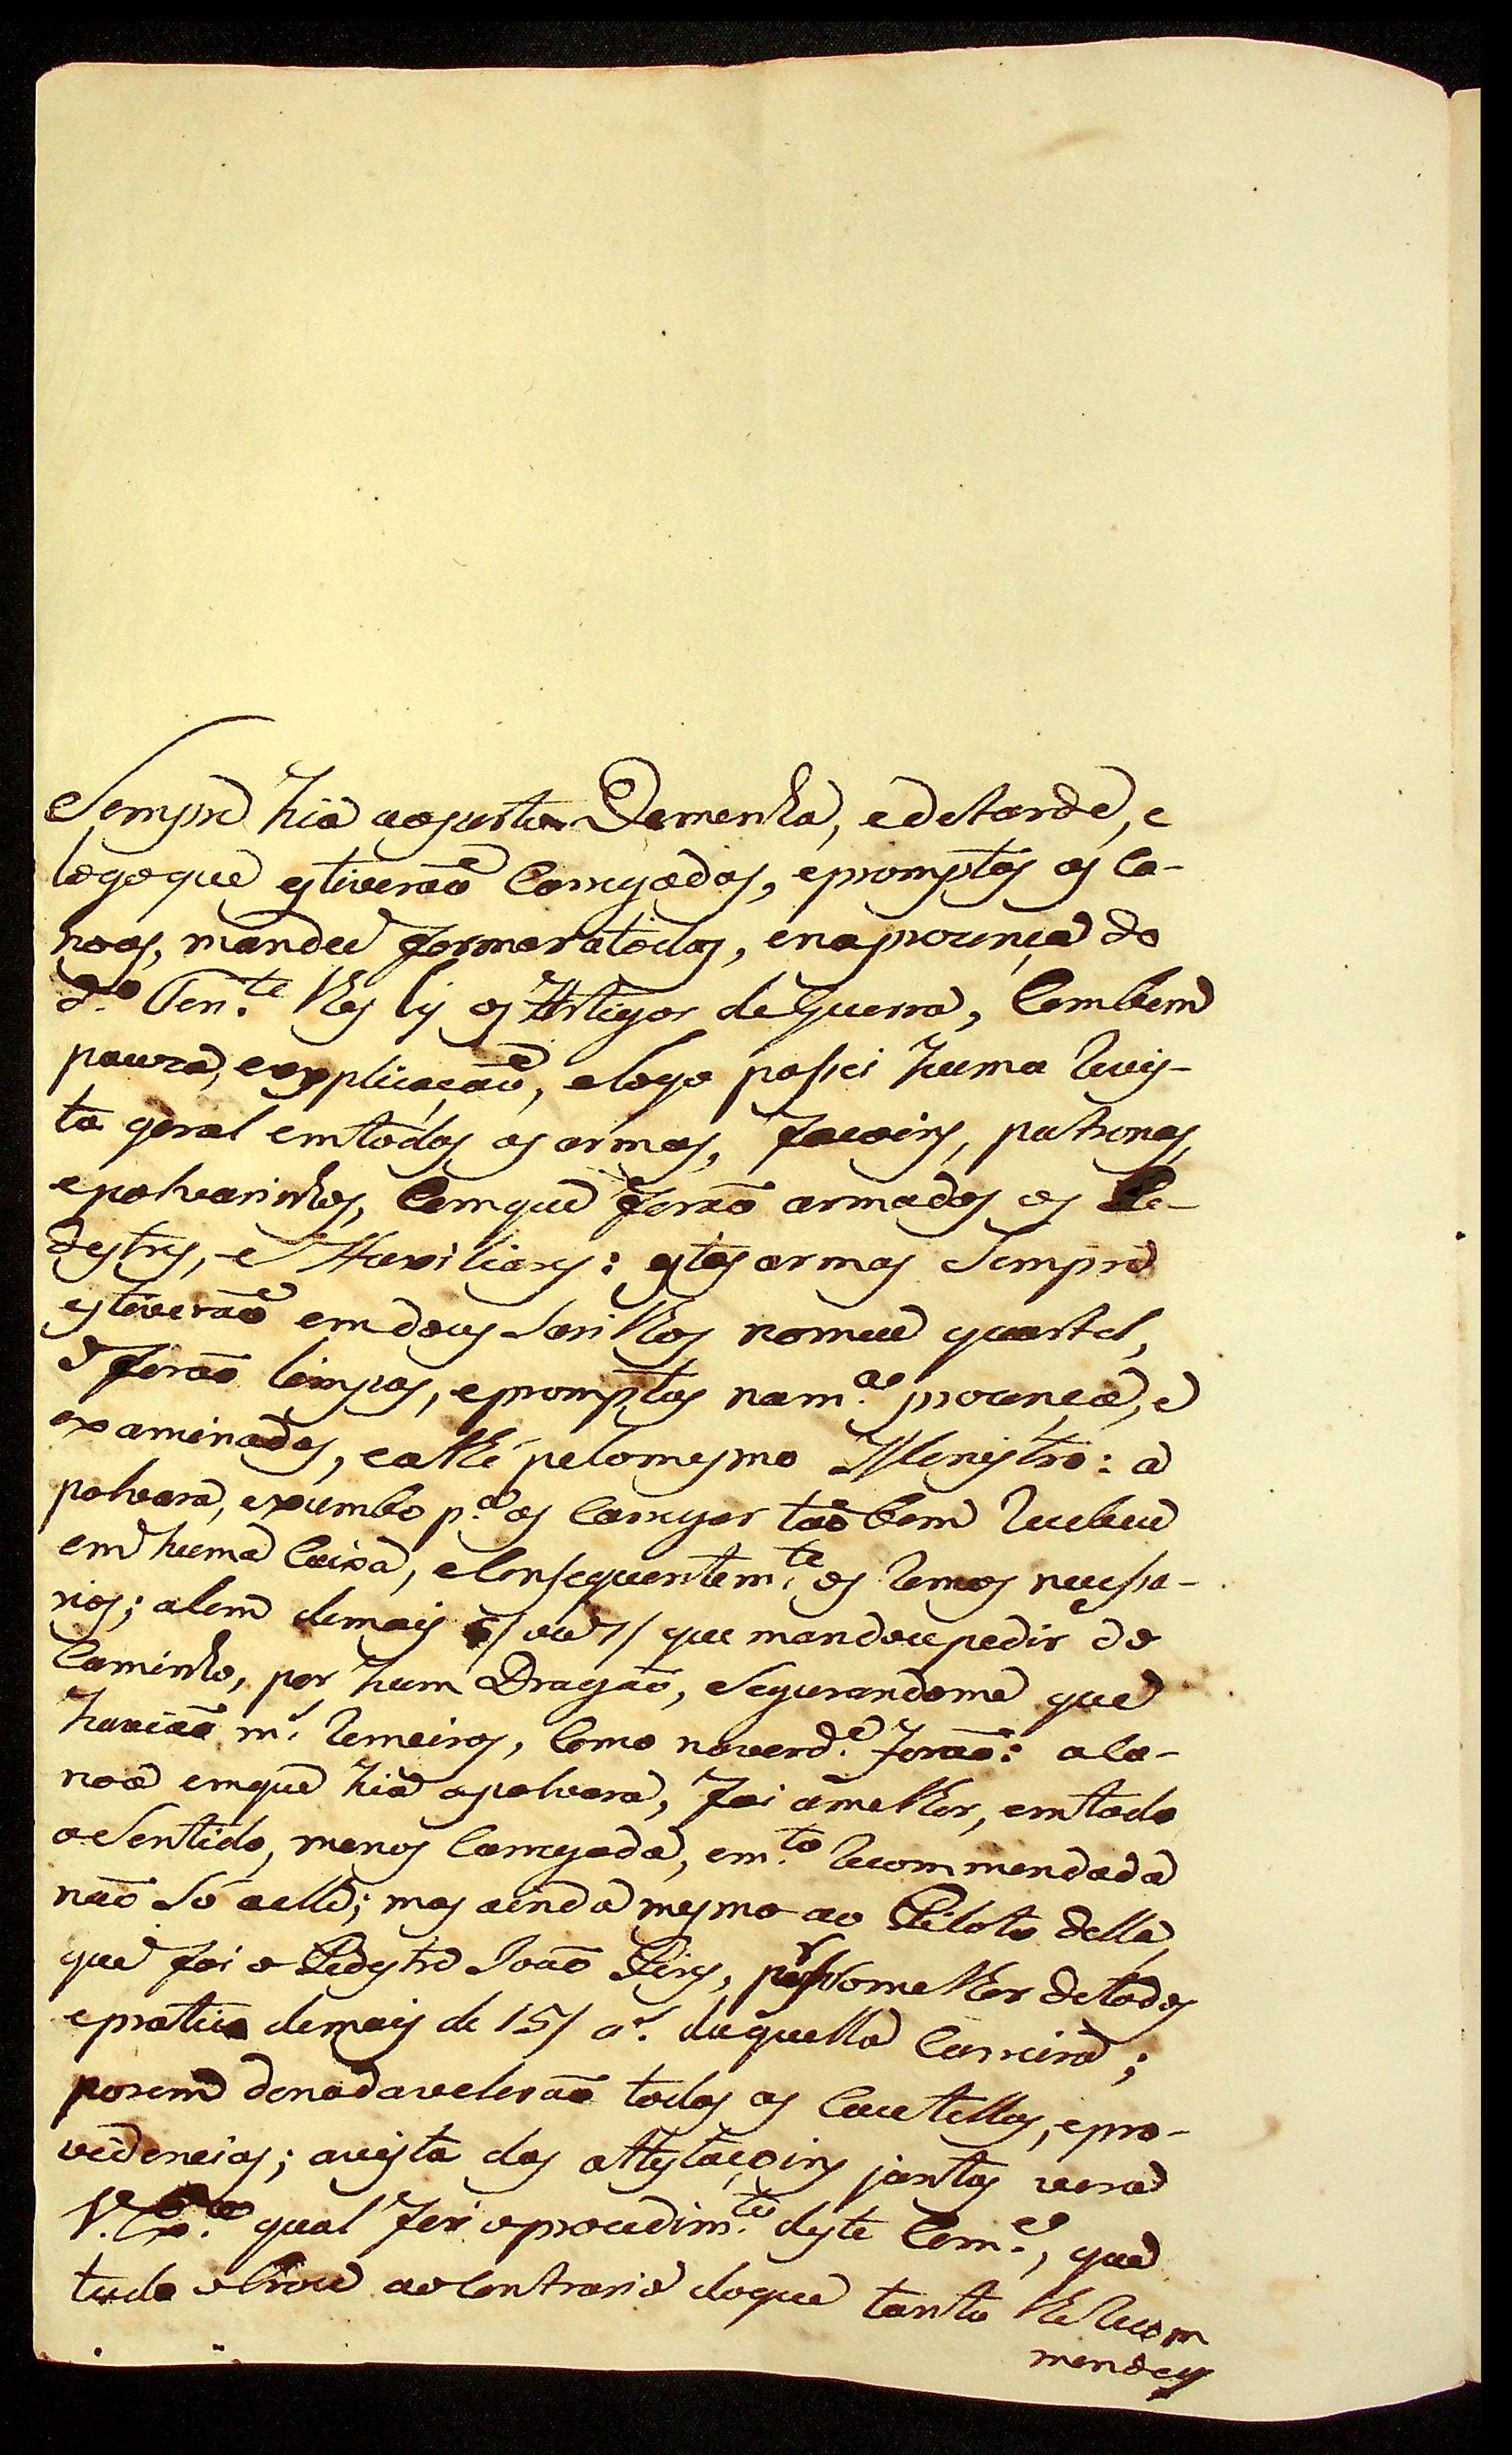 Sempre hia ao porto Demenhã, edetarde, e
logoque estiverão Carregadas, epromptas as Ca-
noas, mandei formar atodos, enaprezença do
d.º Ten.te lhes ly os Artigos deguerra, Combem
pauza, eexplicação, elogo passei huma Revis-
ta geral emtodas as armas, facoins, patronas,
epolvarinhos, Comque forão armados os Pe-
destres, e Auxiliares: estas armas Sempre
estiverão emdous Sarilhos nomeu quartel,
e forão limpas, epromptas nam.ª prezença, e
examinadas, eathé pelomesmo Menistro: a
polvara, exumbo p.ª as Carregar tãobem Recebeu
em huma Caixa, eConsequentem.te os Remos necessa-
rios; alem demais 6/ ou 7/ que mandou pedir do
Caminho, por hum Dragão, Segurandome que
havião m.s Remeiros, Como naverd.e forão: aCa-
noa emque hia apolvara, foi amelhor, emtodo
oSentido, menos Carregada, em.to Recommendada
não Só aelle; mas ainda mesmo ao Piloto della,
que foi o Pedestre João Pires, por Ser omelhor detodos
epratico demais de 15/ a.s daquella Carreira;
porem denadavalerão todas as Cautellas, epro-
videncias; avista das attestaçoins juntas verá
V. Ex.ª qual foi oprocedim.to deste Com.e, que
tudo obrou aoContrario doque tanto lhe Recom
mendey